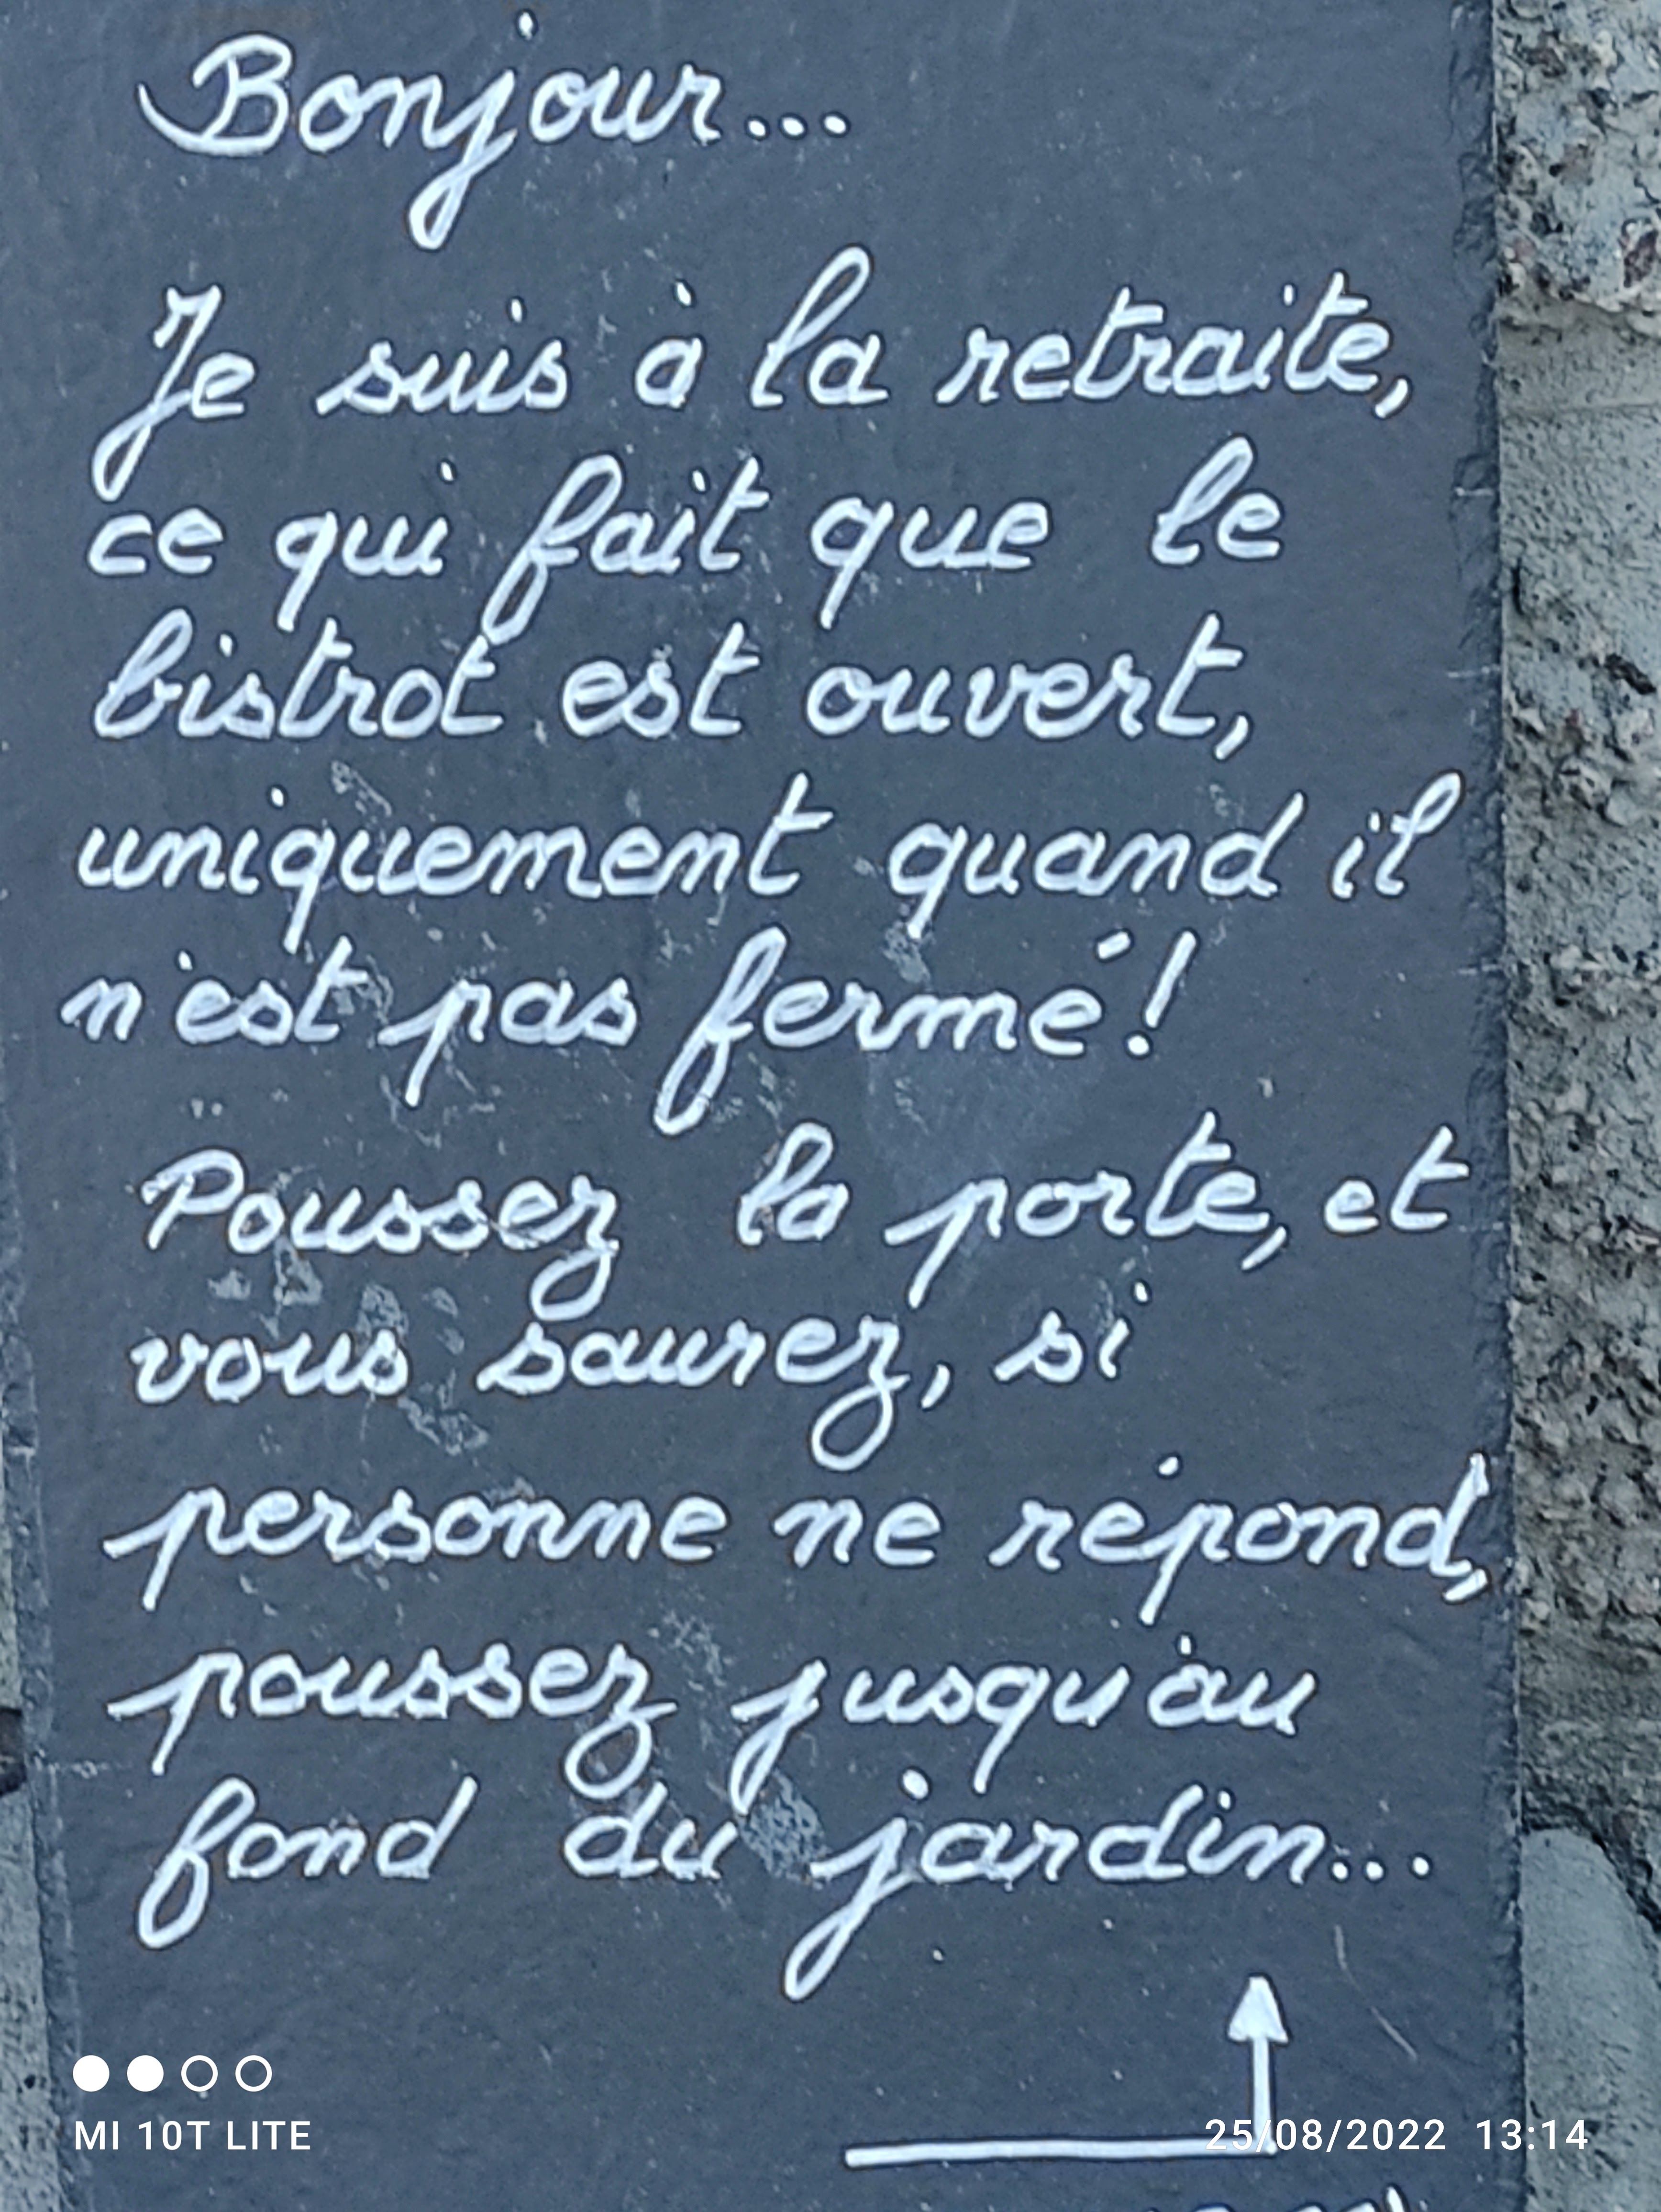 Bonjour...
Je suis à la retraite,
ce qui fait que le
bistrot est ouvert,
uniquement quand il
n'est pas fermé!
Poussez la porte, et
vous saurez, si
personne ne répond,
poussez jusqu'au
fond du jardin...
MI 10T LITE
25/08/2022 13:14